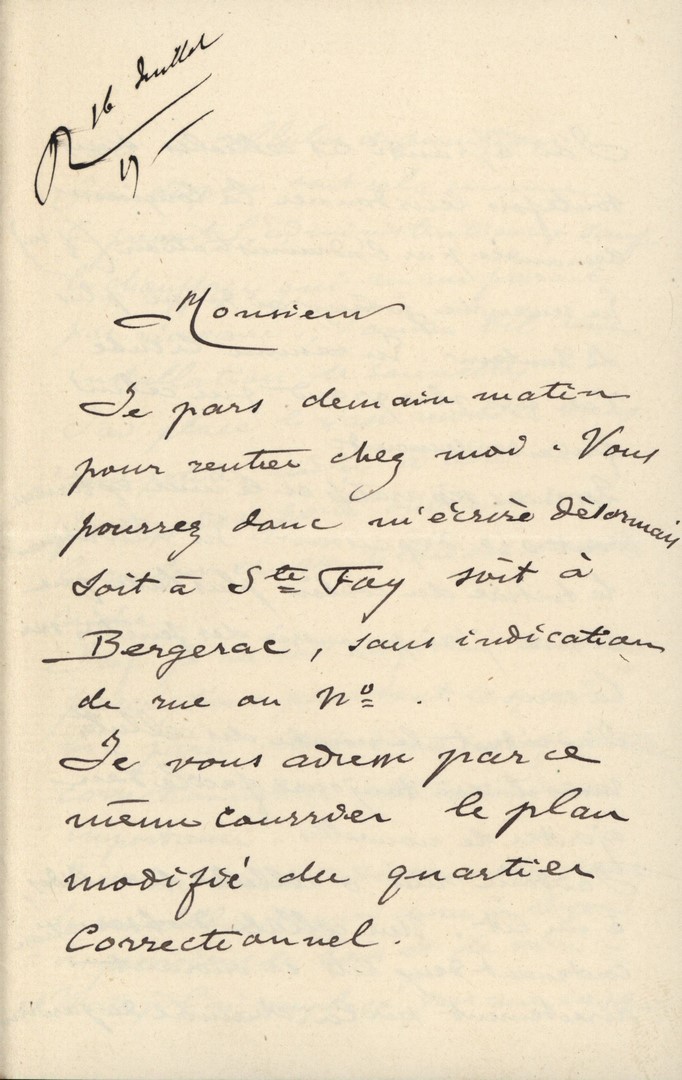 R 16 Juillet
Monsieur
Je pars demain matin
pour rentrer chez moi. Vous
pourrez donc m'écrire désormais
soit à Ste Foy soit à
Bergerac, sans indication
de rue ou No.
Je vous adresse par ce
même courrier le plan
modifié du quartier
Correctionnel.